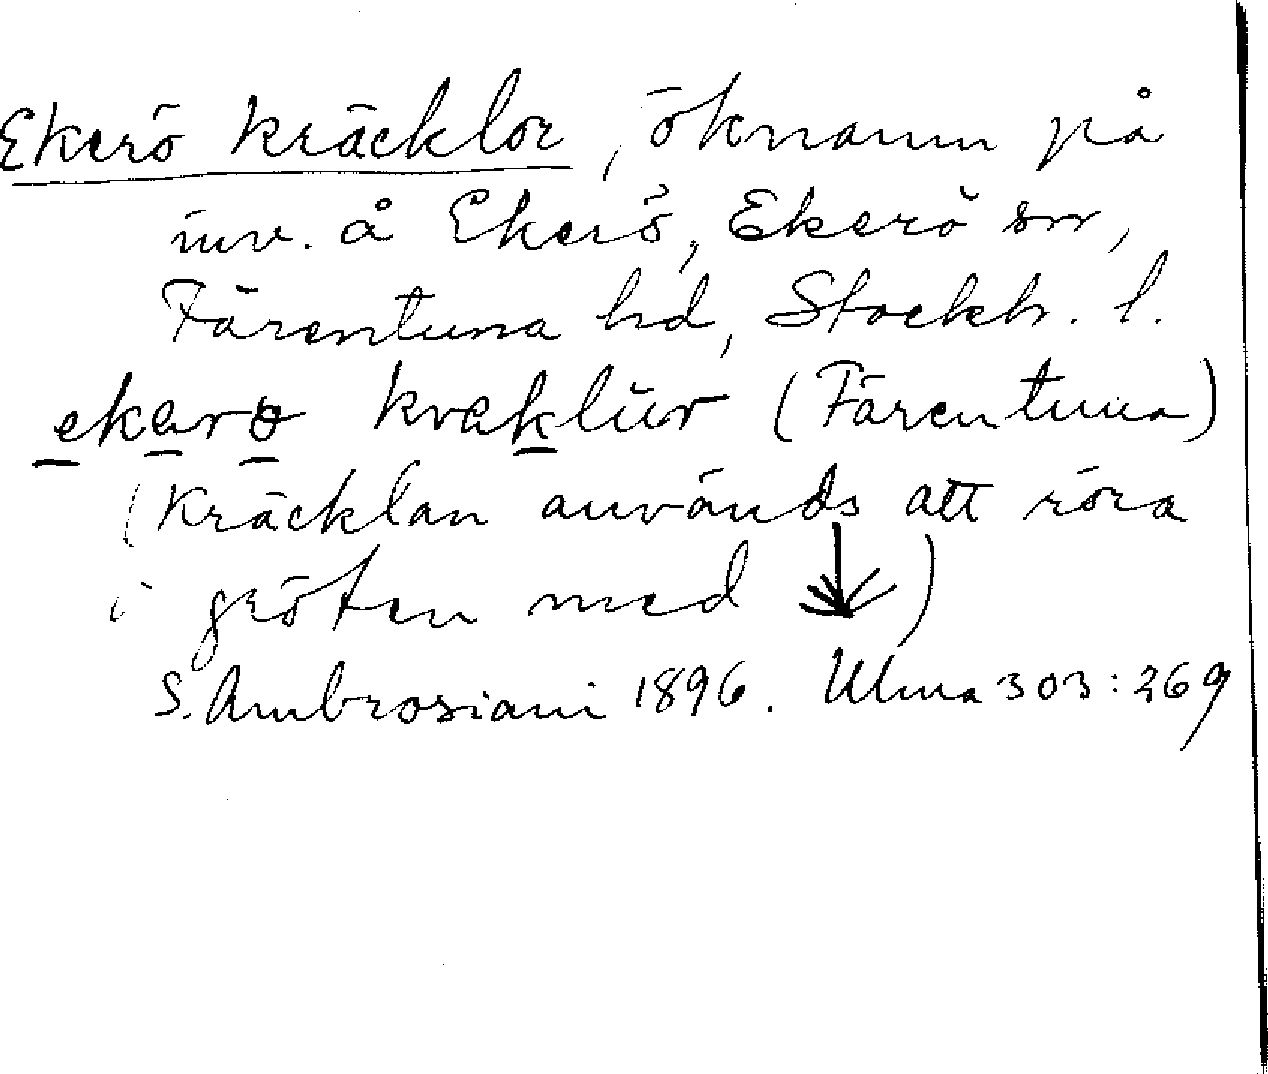 Ekerö kräcklor, öknamn på
inv. å Ekerö, Ekerö sn,
Färentuna hd, Stockh. l.
ekarö kräklur (Färentuna)
(Kräcklan används att röra
i gröten med ↓)
S. Ambrosiani 1896. Ulma 303:269